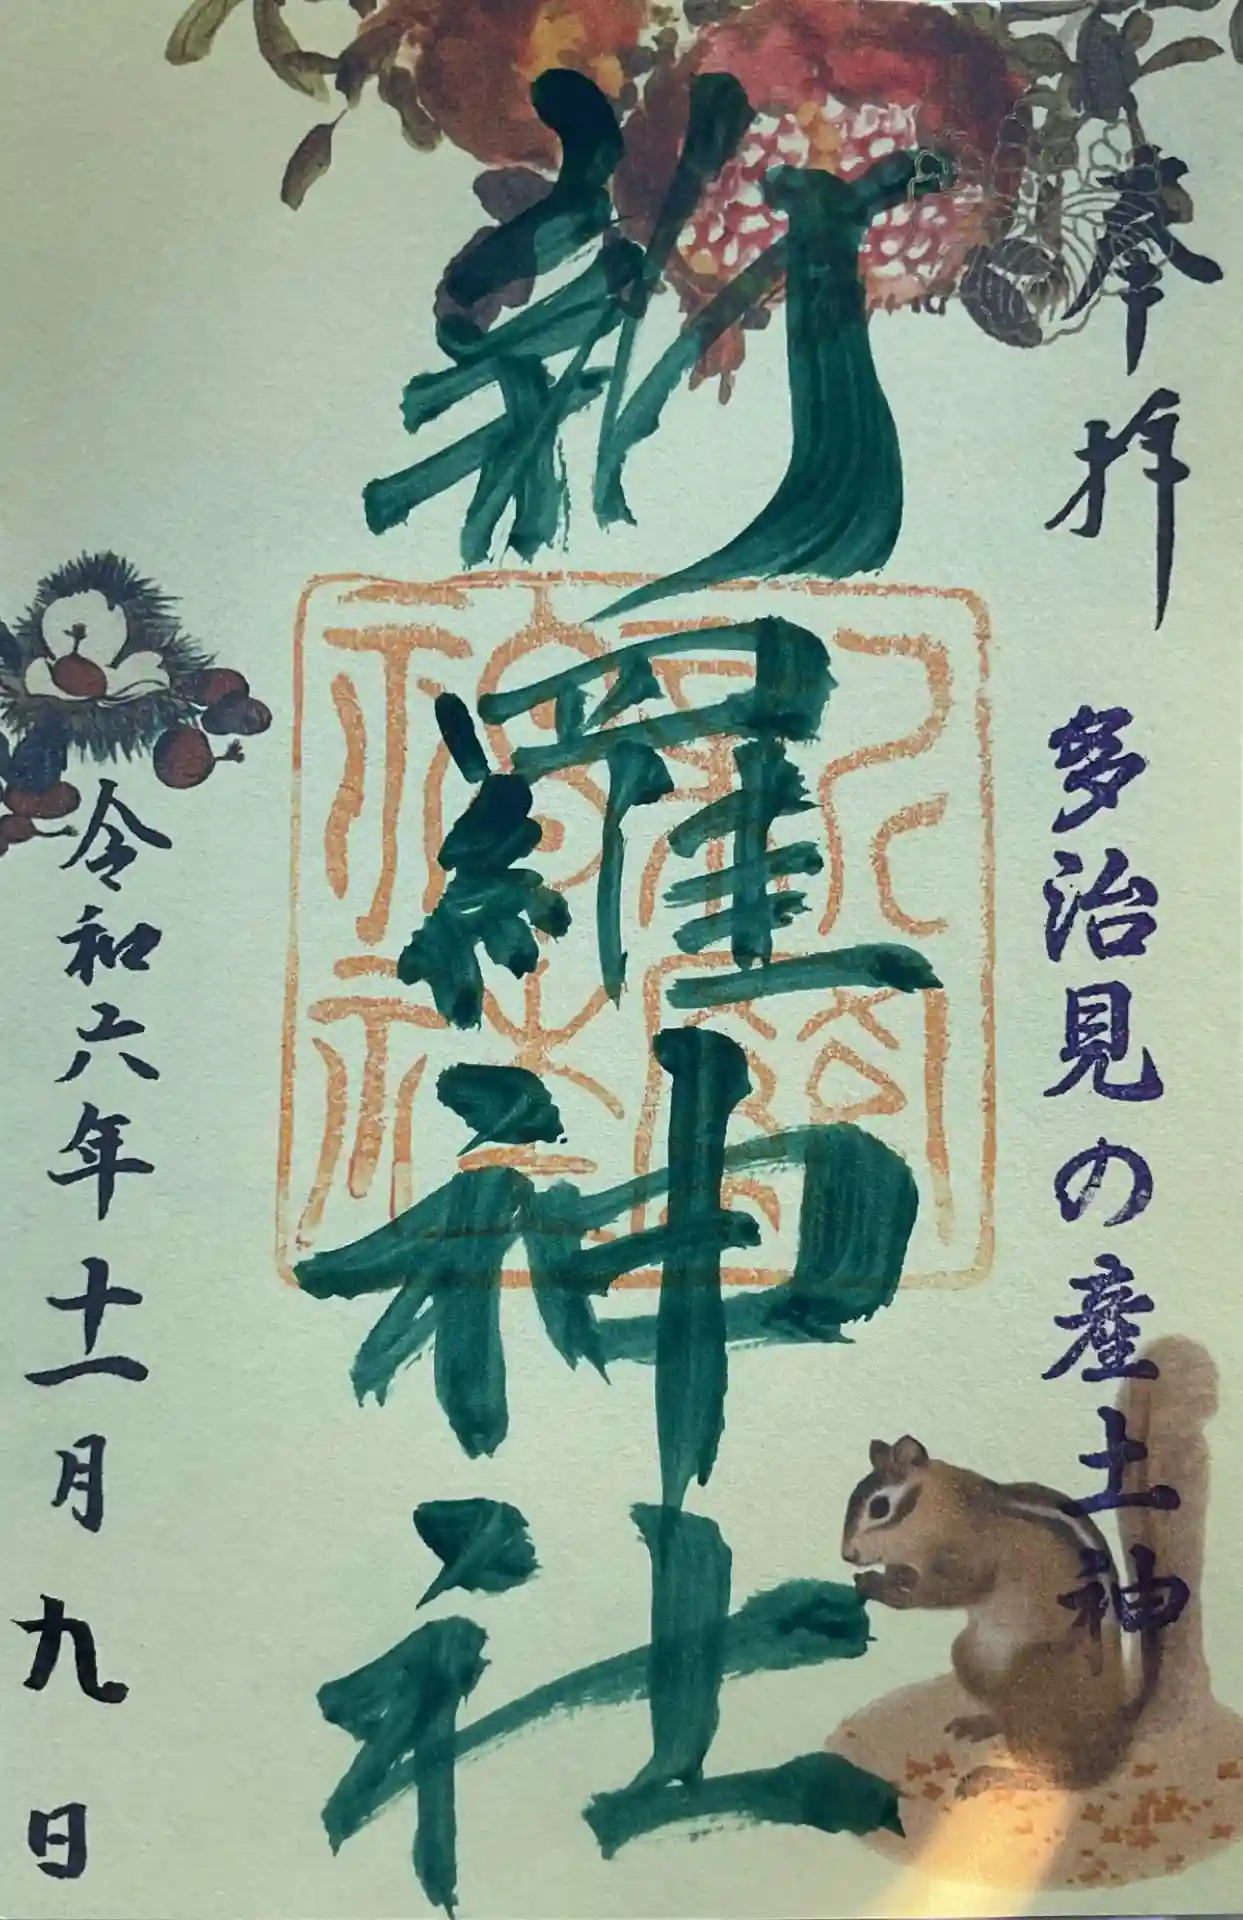 奉拝
多治見の産土神
新羅神社
令和六年十一月九日